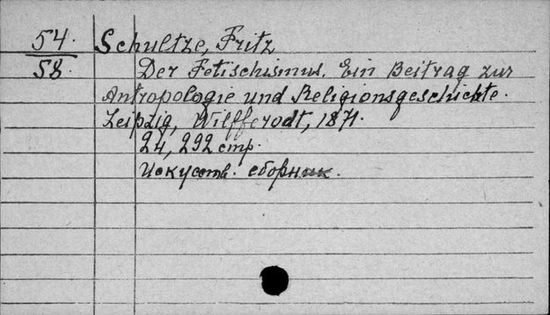 54. Schultze, Fritz
58. Der Fetischismus. Ein Beitrag zur
Antropologie und Religionsgeschichte.
Leipzig, Wilfferodt, 1871.
24, 292 стр.
Искусств. сборник.